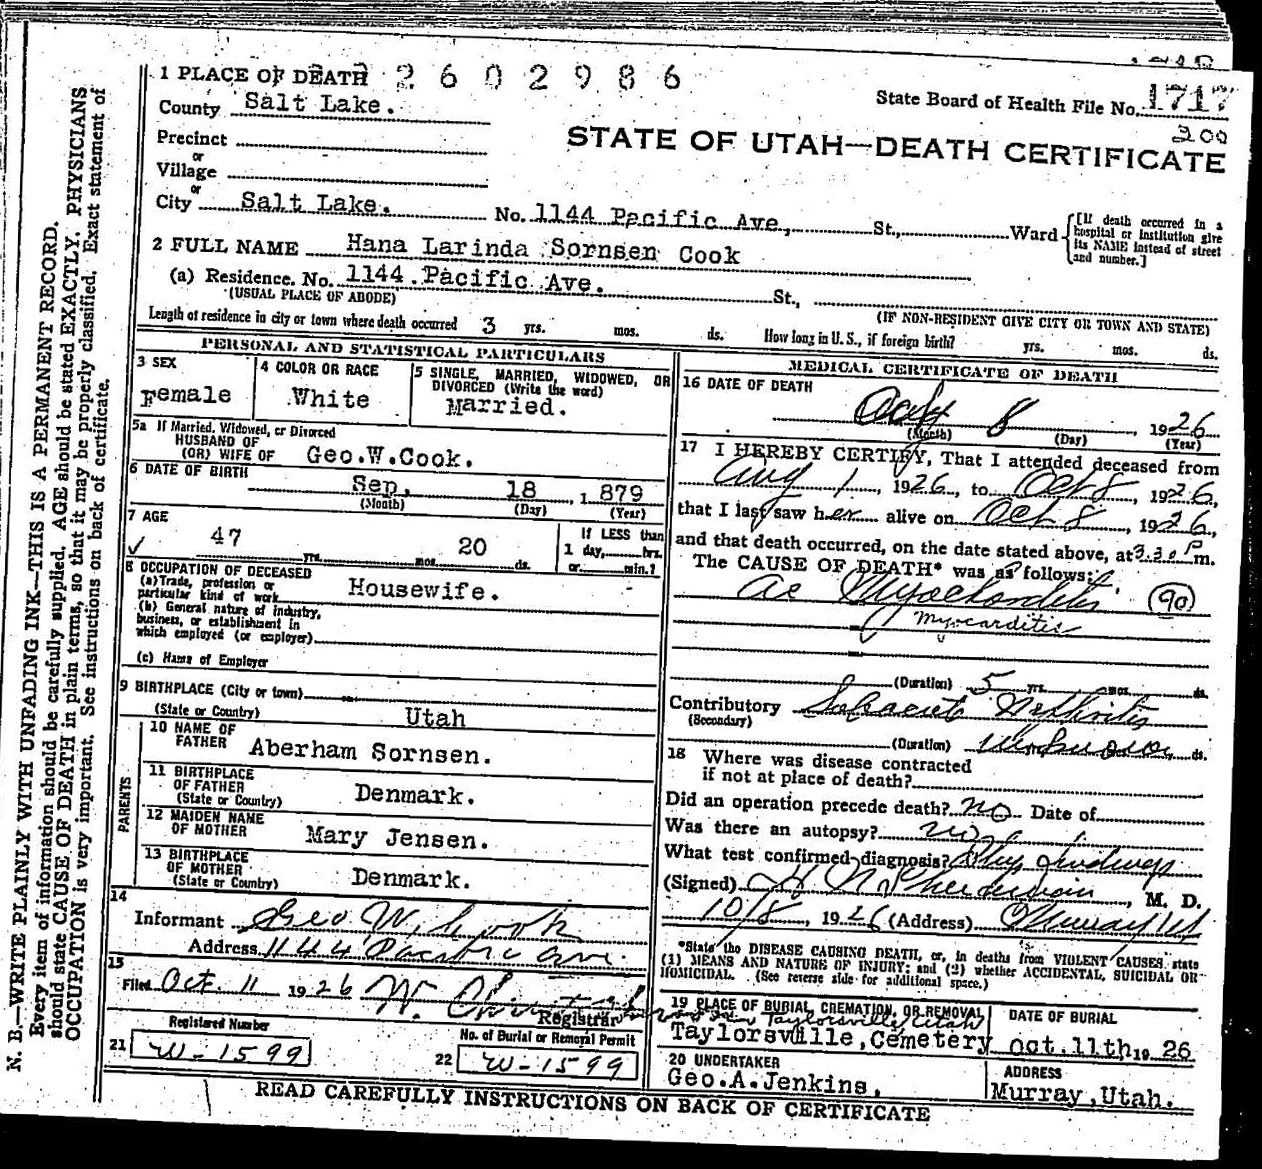 1 PLACE OF DEATH 2602986
State Board of Health File No. 1717
County Salt Lake.
300
STATE OF UTAH—DEATH CERTIFICATE
Precinct
or
Village
or
City Salt Lake. No. 1144 Pacific Ave, St., Ward
[If death occurred in a hospital or institution give its NAME instead of street and number.]
2 FULL NAME Hana Larinda Sornsen Cook
(a) Residence. No. 1144 Pacific Ave. St.,
(USUAL PLACE OF ABODE) (IF NON-RESIDENT GIVE CITY OR TOWN AND STATE)
Length of residence in city or town where death occurred 3 yrs. mos. ds. How long in U. S., if foreign birth? yrs. mos. ds.
PERSONAL AND STATISTICAL PARTICULARS
3 SEX
Female
4 COLOR OR RACE
White
5 SINGLE, MARRIED, WIDOWED, OR
DIVORCED (Write the word)
Married.
5a If Married, Widowed, or Divorced
HUSBAND OF
(OR) WIFE OF Geo.W.Cook.
6 DATE OF BIRTH
Sep. 18 , 1 879
(Month) (Day) (Year)
7 AGE
47 yrs. mos. 20 ds.
If LESS than
1 day, hrs.
or min.?
8 OCCUPATION OF DECEASED
(a) Trade, profession or
particular kind of work Housewife.
(b) General nature of industry,
business, or establishment in
which employed (or employer)
(c) Name of Employer
9 BIRTHPLACE (City or town)
(State or Country) Utah
PARENTS
10 NAME OF
FATHER Aberham Sornsen.
11 BIRTHPLACE
OF FATHER
(State or Country) Denmark.
12 MAIDEN NAME
OF MOTHER Mary Jensen.
13 BIRTHPLACE
OF MOTHER
(State or Country) Denmark.
14
Informant Geo W. Cook
Address 1144 Pacific Ave.
15
Filed Oct. 11 1926 W.
Registrar
Registered Number
21 W-1599
No. of Burial or Removal Permit
22 W-1599
MEDICAL CERTIFICATE OF DEATH
16 DATE OF DEATH
Oct 8 , 1926
(Month) (Day) (Year)
17 I HEREBY CERTIFY, That I attended deceased from
Aug 1, 1926, to Oct 8, 1926,
that I last saw her alive on Oct 8, 1926,
and that death occurred, on the date stated above, at 3:30 P m.
The CAUSE OF DEATH* was as follows:
Ac (90)
Myocarditis
(Duration) 5 yrs. mos. ds.
Contributory Nephritis
(Secondary)
(Duration) ds.
18 Where was disease contracted
if not at place of death?
Did an operation precede death? no Date of
Was there an autopsy? no
What test confirmed diagnosis?
(Signed) , M. D.
10/8, 1926 (Address) Murray Ut
*State the DISEASE CAUSING DEATH, or, in deaths from VIOLENT CAUSES, state
(1) MEANS AND NATURE OF INJURY; and (2) whether ACCIDENTAL, SUICIDAL OR
HOMICIDAL. (See reverse side for additional space.)
19 PLACE OF BURIAL, CREMATION, OR REMOVAL
Taylorsville, Utah
Taylorsville, Cemetery
DATE OF BURIAL
Oct.11th 19 26
20 UNDERTAKER
Geo.A.Jenkins,
ADDRESS
Murray, Utah.
READ CAREFULLY INSTRUCTIONS ON BACK OF CERTIFICATE
N. B.—WRITE PLAINLY WITH UNFADING INK—THIS IS A PERMANENT RECORD.
Every item of information should be carefully supplied. AGE should be stated EXACTLY. PHYSICIANS
should state CAUSE OF DEATH in plain terms, so that it may be properly classified. Exact statement of
OCCUPATION is very important. See instructions on back of certificate.